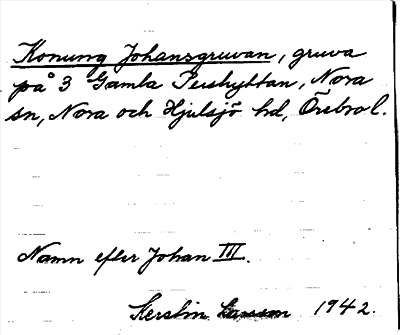 Konung Johansgruvan, gruva
på 3 Gamla Pershyttan, Nora
sn, Nora och Hjulsjö hd, Örebro l.
Namn efter Johan III.
Kerstin 1942.